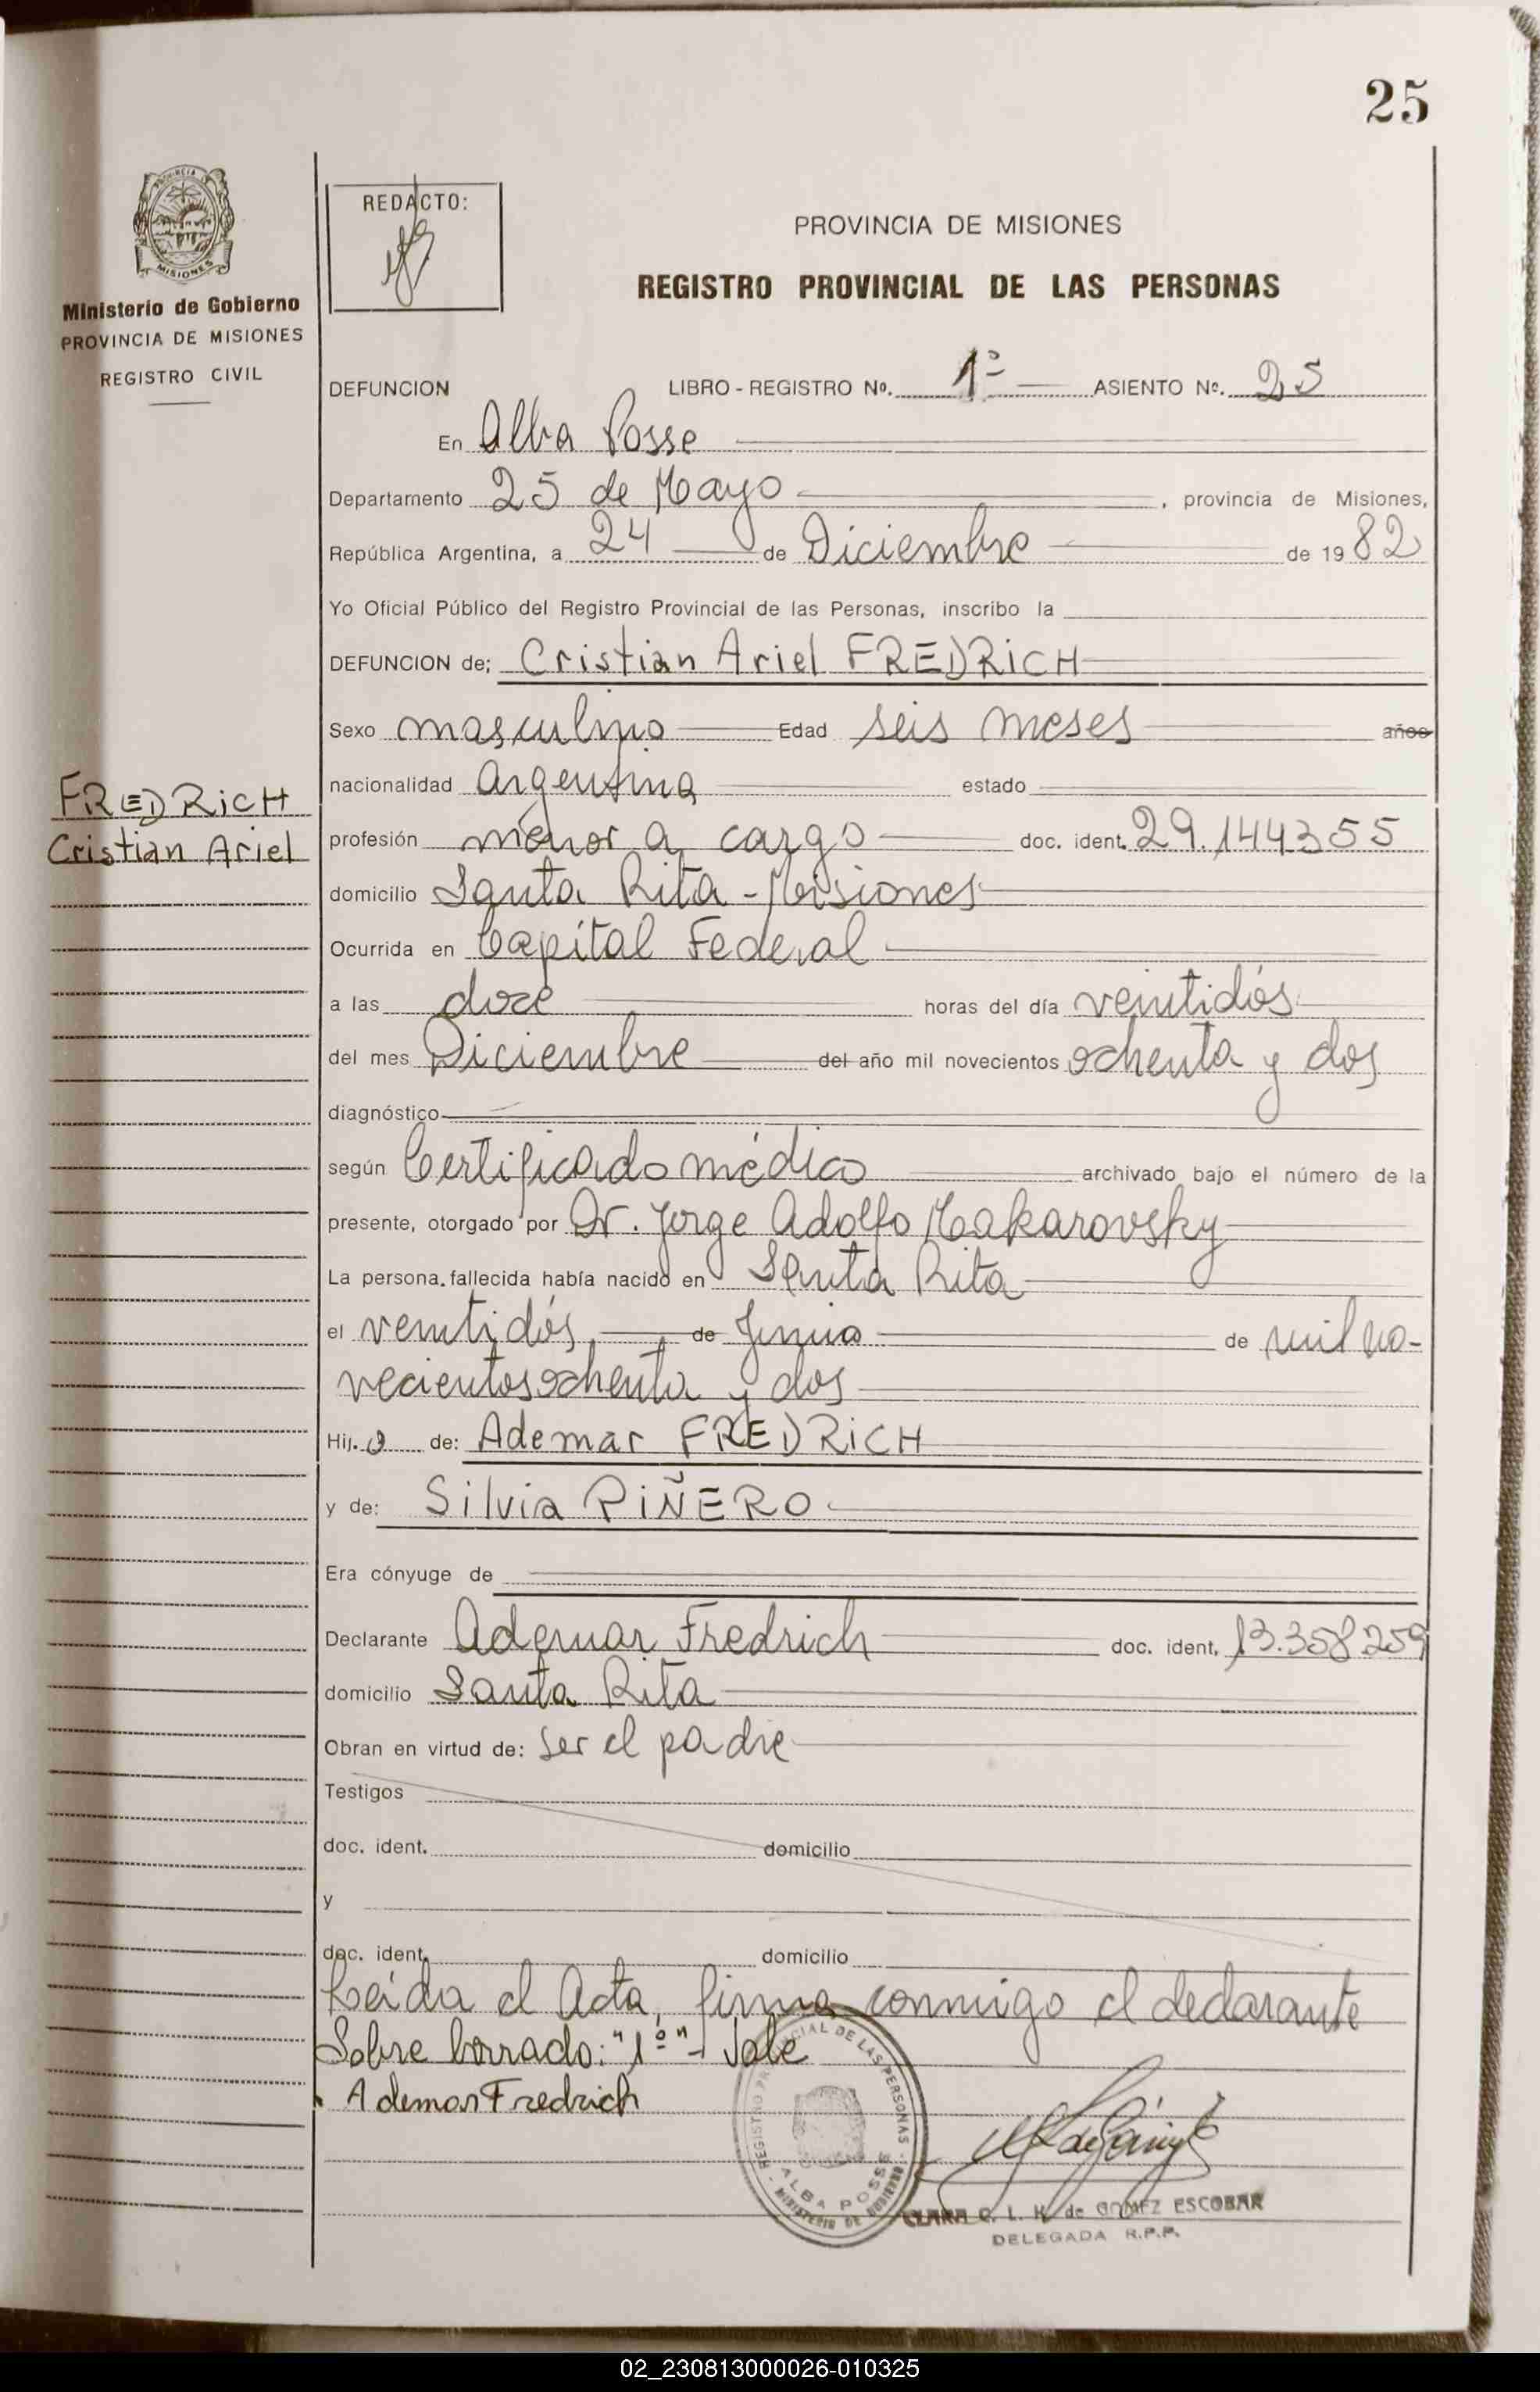 25
PROVINCIA
MISIONES
Ministerio de Gobierno
PROVINCIA DE MISIONES
REGISTRO CIVIL
REDACTO:
PROVINCIA DE MISIONES
REGISTRO PROVINCIAL DE LAS PERSONAS
DEFUNCION LIBRO - REGISTRO Nº. 1º ASIENTO Nº. 25
En Alba Posse
Departamento 25 de Mayo, provincia de Misiones,
República Argentina, a 24 de Diciembre de 1982
Yo Oficial Público del Registro Provincial de las Personas, inscribo la
DEFUNCION de; Cristian Ariel FREDRiCH
Sexo masculino Edad seis meses años
FREDRiCH
Cristian Ariel
nacionalidad argentina estado
profesión menor a cargo doc. ident. 29.144355
domicilio Santa Rita - Misiones
Ocurrida en Capital Federal
a las doce horas del día veintidós
del mes Diciembre del año mil novecientos ochenta y dos
diagnóstico
según Certificado médico archivado bajo el número de la
presente, otorgado por Dr. Jorge Adolfo Makarovsky
La persona fallecida había nacido en Santa Rita
el veintidós de Junio de mil no-
vecientos ochenta y dos
Hij.o de: Ademar FREDRiCH
y de: Silvia PiÑERO
Era cónyuge de
Declarante Ademar Fredrich doc. ident. 13.358259
domicilio Santa Rita
Obran en virtud de: ser el padre
Testigos
doc. ident. domicilio
y
doc. ident. domicilio
Leída el Acta, firma conmigo el declarante
Sobre borrado: "1º" - Vale
Ademar Fredrich
REGISTRO PROVINCIAL DE LAS PERSONAS
ALBA POSSE
MINISTERIO DE GOBIERNO
CLARA C. L. K. de GOMEZ ESCOBAR
DELEGADA R.P.P.
02_230813000026-010325